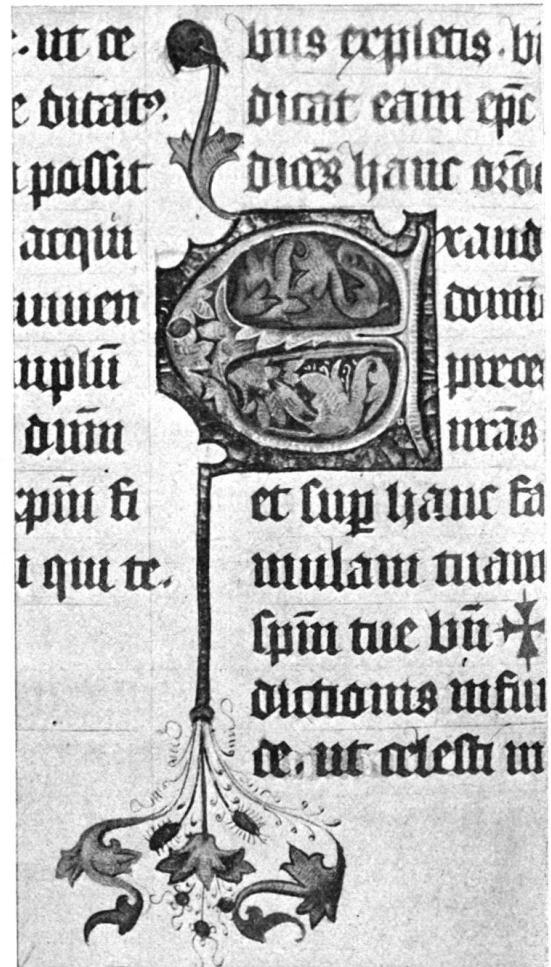 . ut ce
e dicat9.
possit
acqui
uuuen
uiplū
dum̄
xp̄m fi
qui te.
bus expletis. bn̄
dicat eam ep̄c
dicēs hanc orōe
Exaud
domī
preces
nr̄as
et sup hanc fa
mulam tuam
sp̄m tue bn̄ ✠
dictionis infun
de. ut celesti m